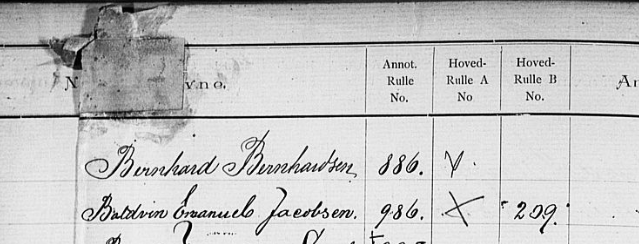 Annot. Rulle No.
Hoved- Rulle A No
Hoved- Rulle B No.
Bernhard Bernhardsen 886.
Baldvin Emanuel Jacobsen. 986. X 209.